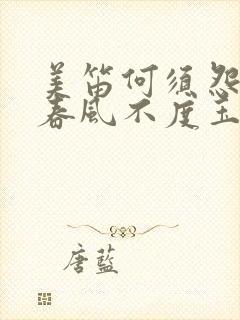 羌笛何须怨
春风不度玉
唐藍